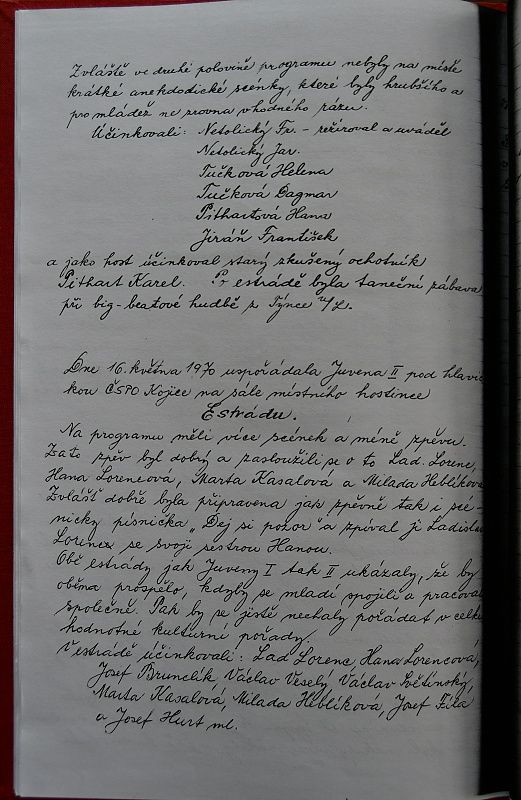 Zvláště ve druhé polovině programu nebyly na místě
krátké anekdodické scénky, které byly hrubšího a
pro mládež ne zrovna vhodného rázu.
Účinkovali: Netolický Fr. – režíroval a uváděl
Netolický Jar.
Tučková Helena
Tučková Dagmar
Pithartová Hana
Jiráň František
a jako host účinkoval starý zkušený ochotník
Pithart Karel. Po estrádě byla taneční zábava
při big-beatové hudbě z Týnce n/L.
Dne 16. května 1970 uspořádala Juvena II pod hlavič
kou ČSPO Kojice na sále místního hostince
Estrádu.
Na programu měli více scének a méně zpěvu.
Zato zpěv byl dobrý a zasloužili se o to Lad. Lorenc,
Hana Lorencová, Marta Kasalová a Milada Heblíková
Zvlášť dobře byla připravena jak zpěvně tak i scé-
nicky písnička „Dej si pozor" a zpíval ji Ladislav
Lorenc se svojí sestrou Hanou.
Obě estrády jak Juveny I tak II ukázaly, že by
oběma prospělo, kdyby se mladí spojili a pracovali
společně. Pak by se jistě nechaly pořádat v celku
hodnotné kulturní pořady.
V estrádě účinkovali: Lad Lorenc, Hana Lorencová,
Josef Brunclík, Václav Veselý, Václav Světinský,
Marta Kasalová, Milada Heblíková, Josef Fila
a Josef Hurt ml.